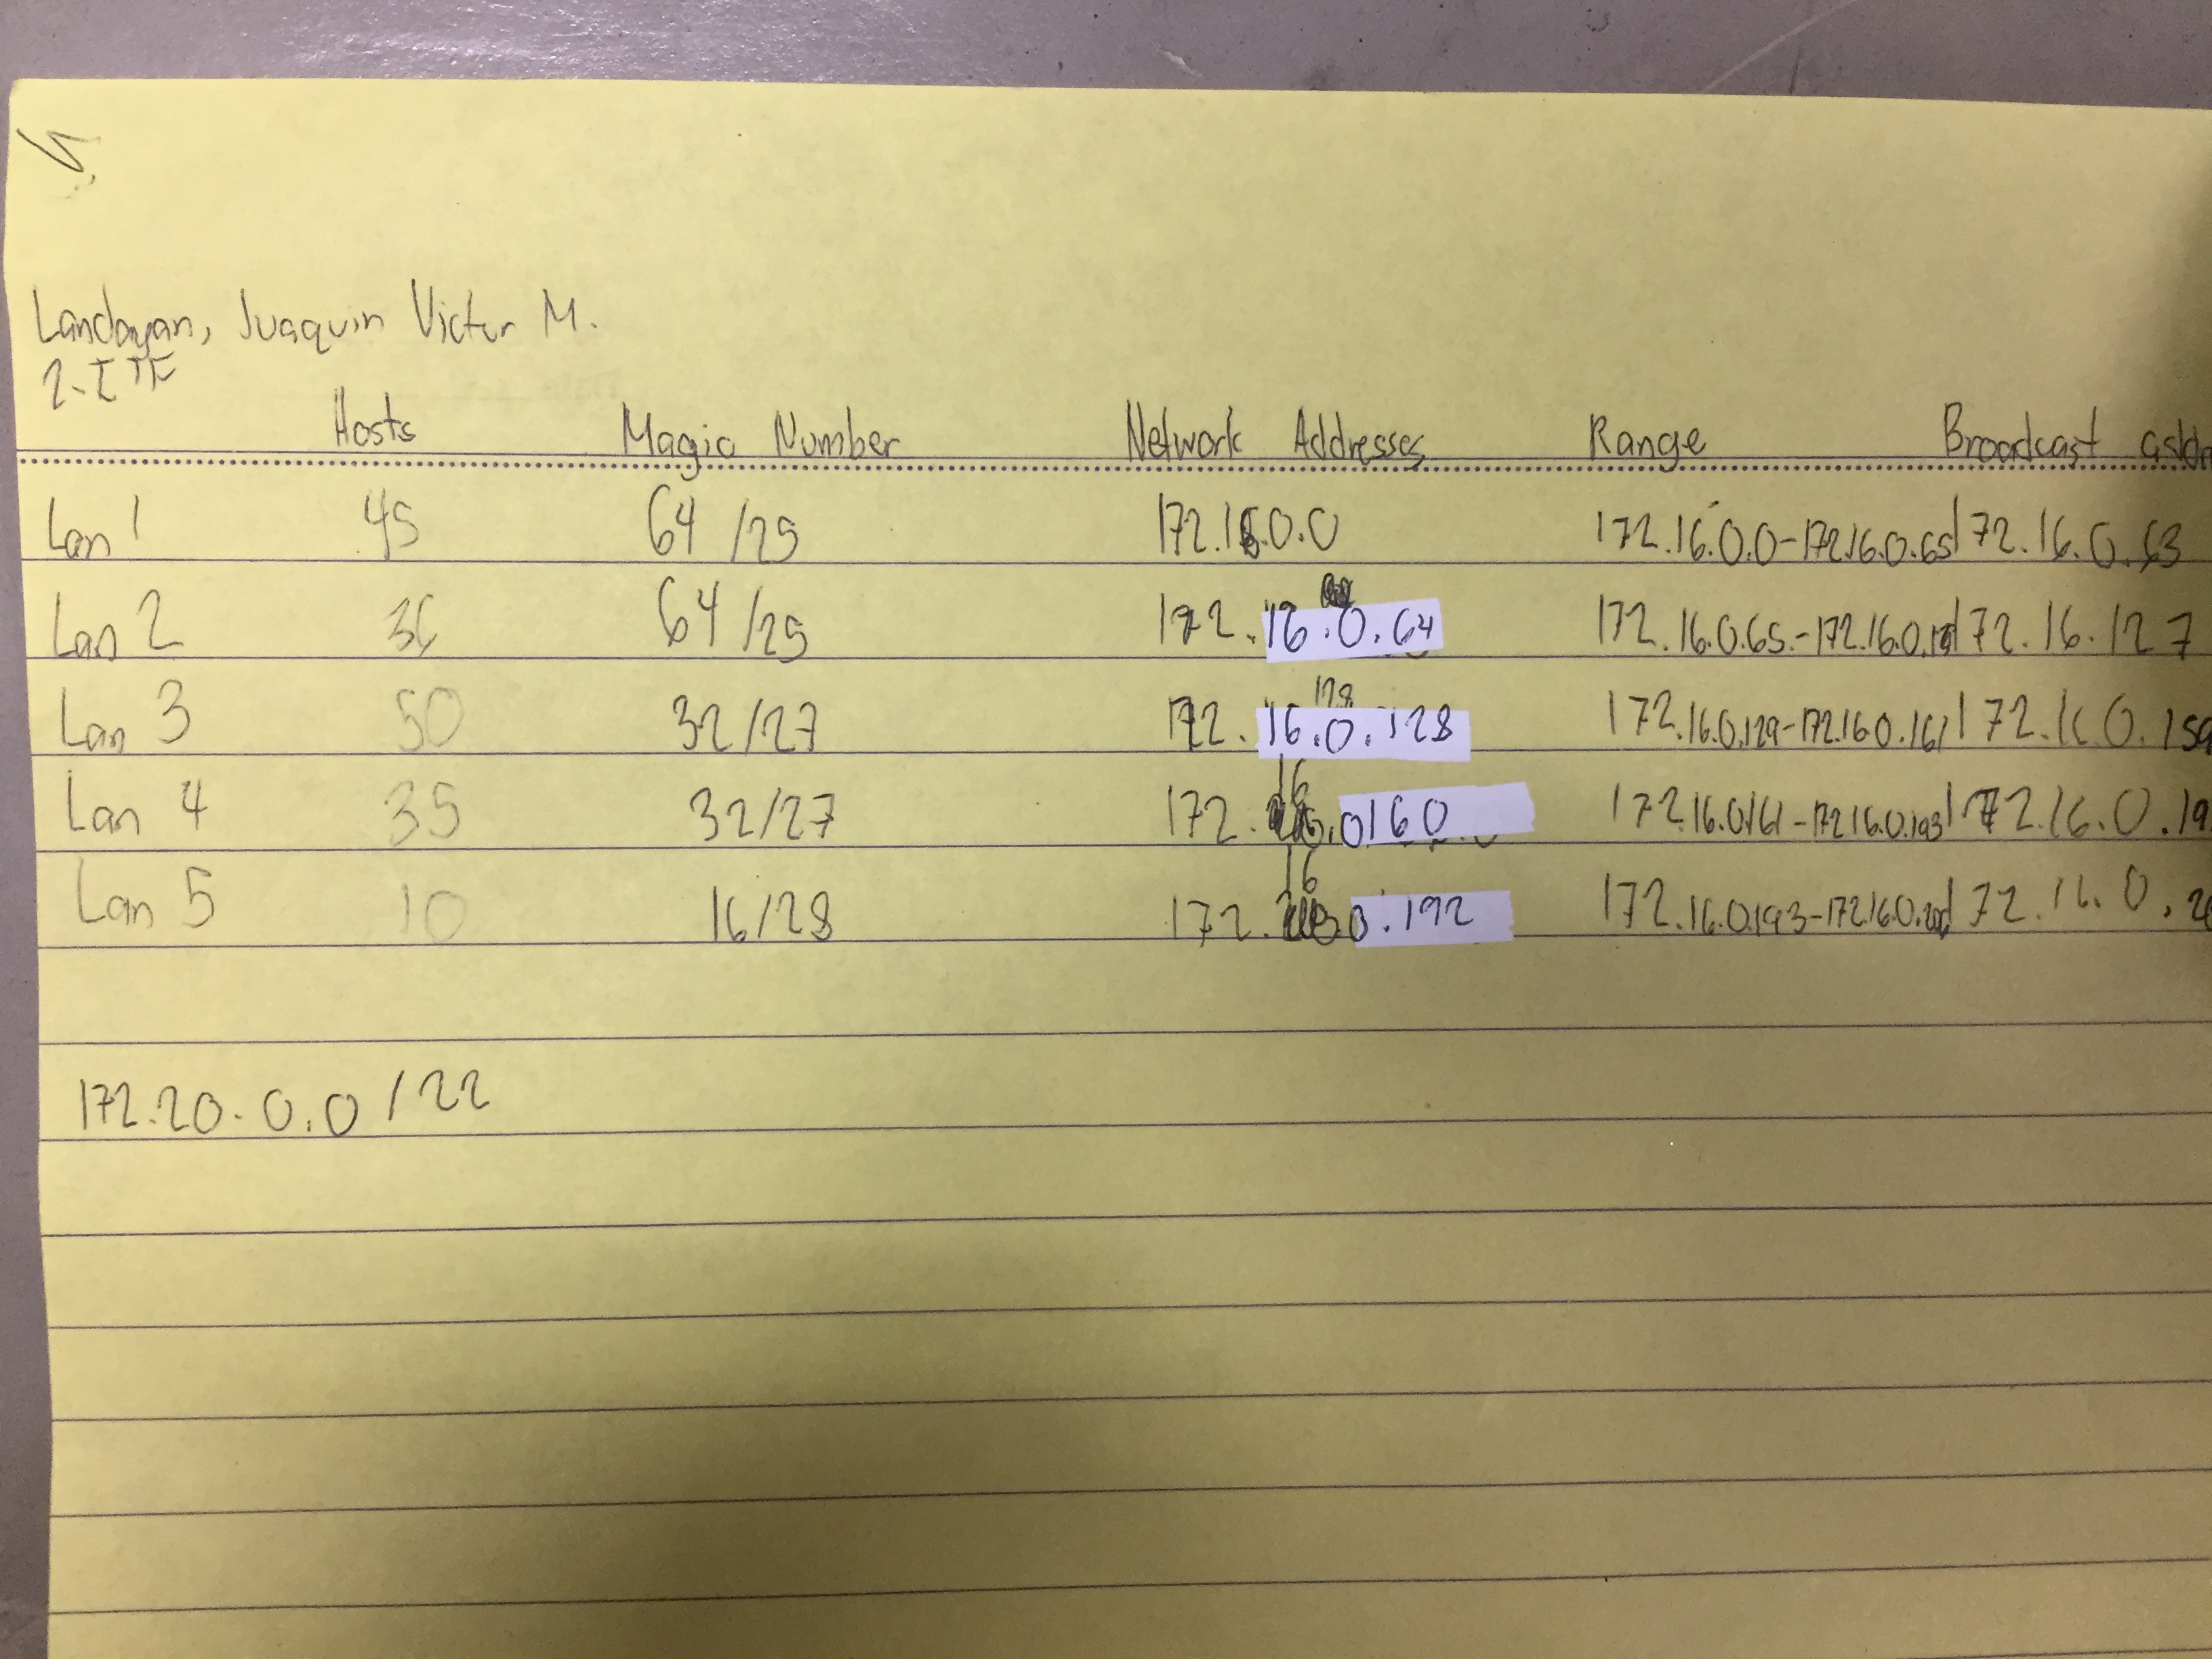 Landayan, Juaquin Victor M.
2-ITF
Hosts Magic Number Network Addresses Range Broadcast
Lan 1 45 64/25 172.16.0.0 172.16.0.0-172.16.0.65 172.16.0.63
Lan 2 64/25 172.16.0.64 172.16.0.65.-172.16.0. 172.16.127
Lan 3 50 32/27 172.16.0.128 172.16.0.129-172.16.0.161 172.16.0.159
Lan 4 35 32/27 172.16.0160 172.16.0161-172.16.0.193 172.16.0.19
Lan 5 10 16/28 172.16.0.192 172.16.0.193-172.16.0. 172.16.0.
172.20.0.0/22